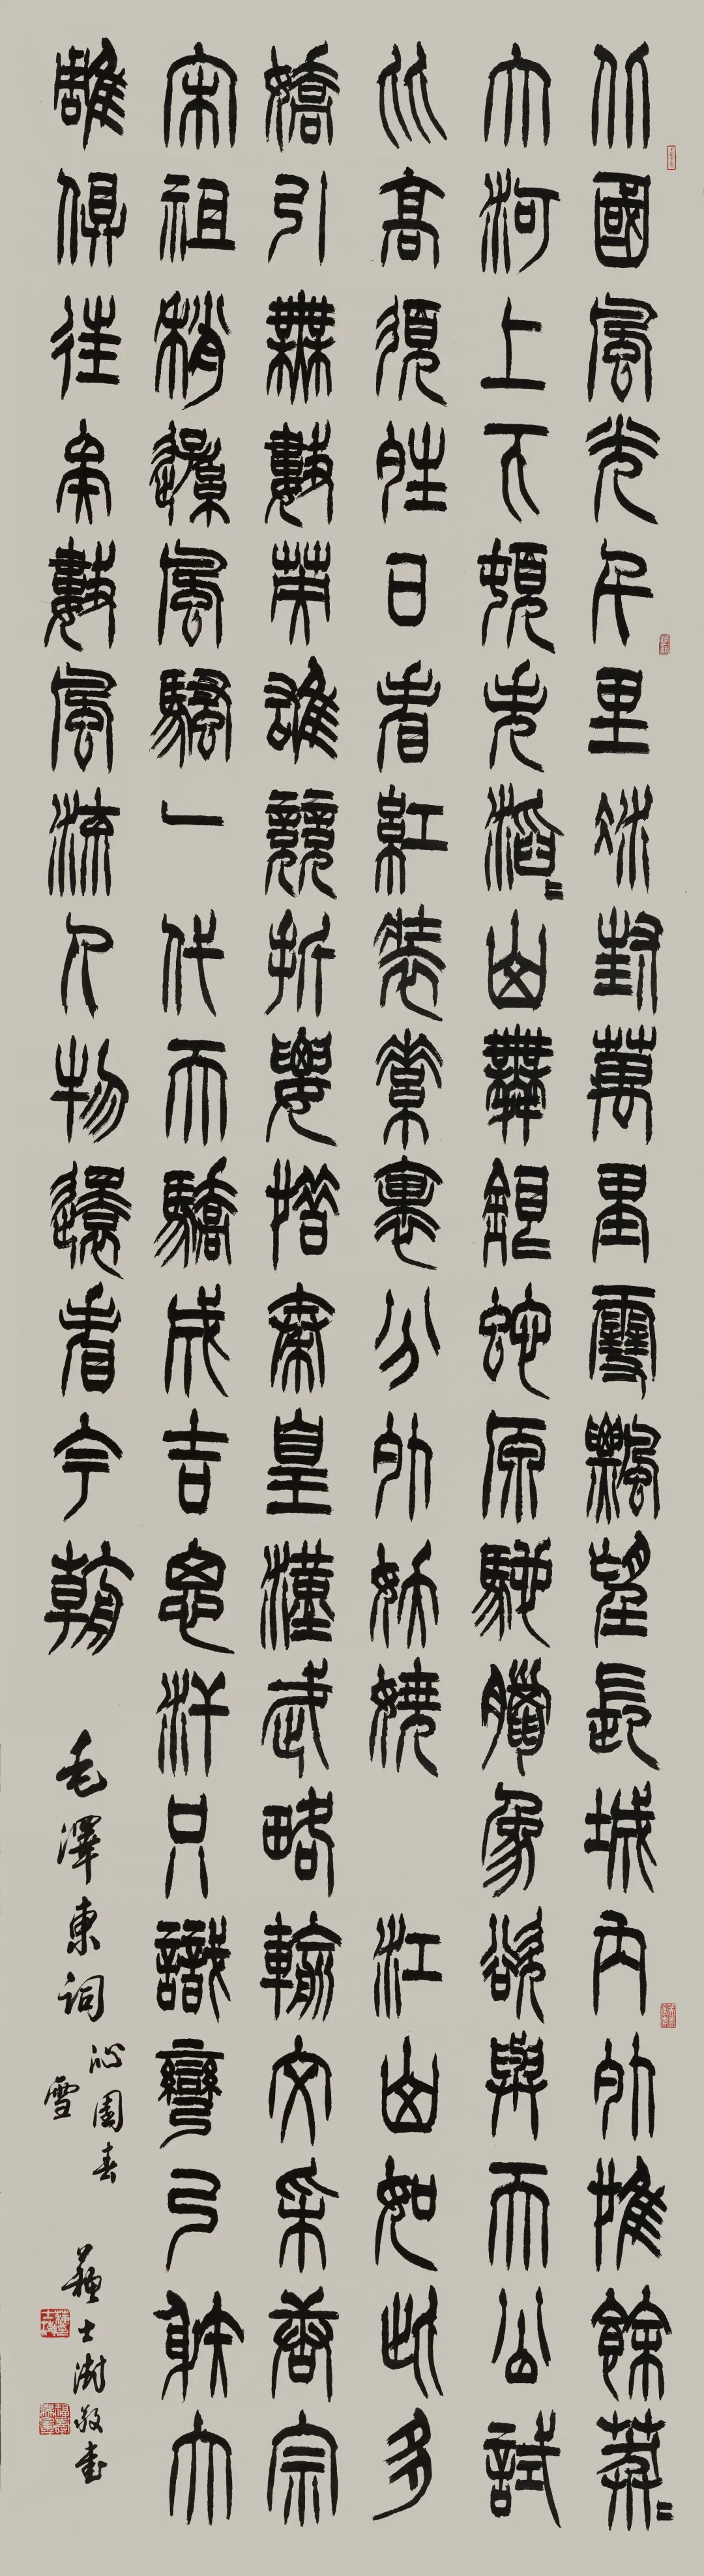 北國風光千里冰封萬里雪飄望長城內外惟餘莽〻
大河上下頓失滔〻山舞銀蛇原馳臘象欲與天公試
比高須晴日看紅裝素裹分外妖嬈 江山如此多
嬌引無數英雄競折腰惜秦皇漢武略輸文采唐宗
宋祖稍遜風騷一代天驕成吉思汗只識彎弓射大
雕俱往矣數風流人物還看今朝 毛澤東詞
沁園春
雪
蘇士澍敬書